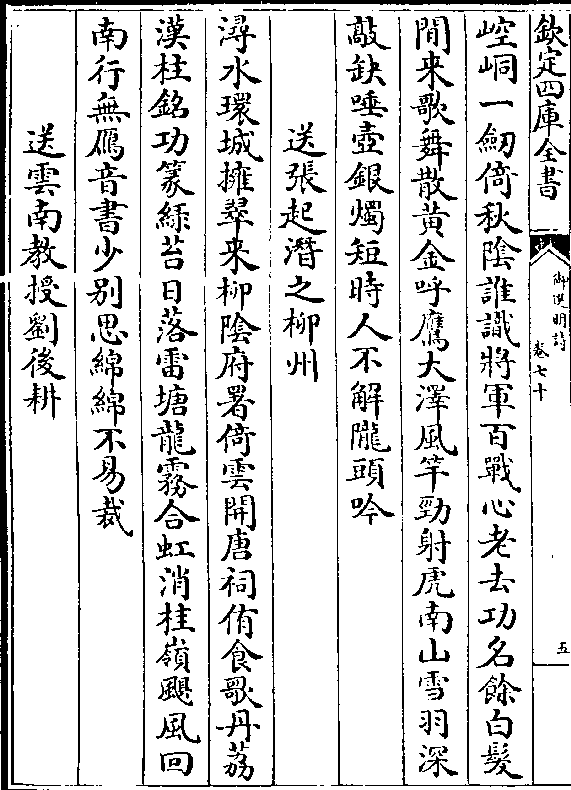 欽定四庫全書
御選明詩
卷七十
五
崆峒一劒倚秋陰誰識將軍百戰心老去功名餘白髮
閒来歌舞散黄金呼鷹大澤風竿勁射虎南山雪羽深
敲缺唾壺銀燭短時人不解隴頭吟
送張起濳之柳州
潯水環城擁翠来柳陰府署倚雲開唐祠侑食歌丹荔
漢柱銘功篆綠苔日落雷塘龍霧合虹消桂嶺颶風回
南行無鴈音書少别思綿綿不易裁
送雲南教授劉後耕